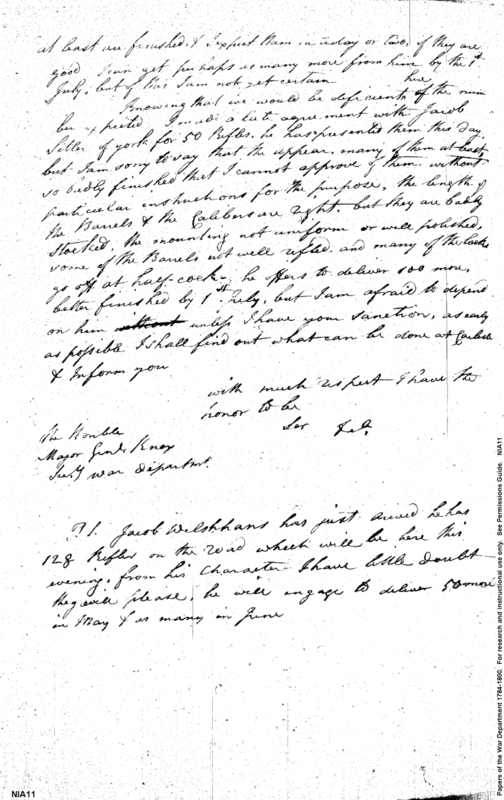 at least are finished. & I expect them in a day or two, if they are
good I can get perhaps as many more from him by the 1st
July, but of this I am not yet certain
Knowing that we would be deficient here of the num
ber expected I made a late agreement with Jacob
of york for 50 Rifles. he has presented them this day.
but I am sorry to say that the appear, many of them at least,
so badly finished that I cannot approve of them without
particular instructions for the purpose, the length of
the Barrels & the Calibers are right. but they are badly
Stocked, the mounting not uniform or well polished,
some of the Barrels not well rifled. and many of the locks
go off at half-cock. he offers to deliver 100 more,
better finished by 1st July, but I am afraid to depend
on him without unless I have your sanction, as early
as possible I shall find out what can be done at Carlisle
& Inform you
with much respect I have the
honor to be
Sir &c.
The Honble
Major Genl Knox
Secy war Departmt.
P.S. Jacob has just arrived he has
128 Rifles on the road which will be here this
evening, from his Character I have little doubt
they will please, he will engage to deliver 50 more
in May & as many in June
NIA11
Papers of the War Department 1784-1800. For research and instructional use only. See Permissions Guide. NIA11